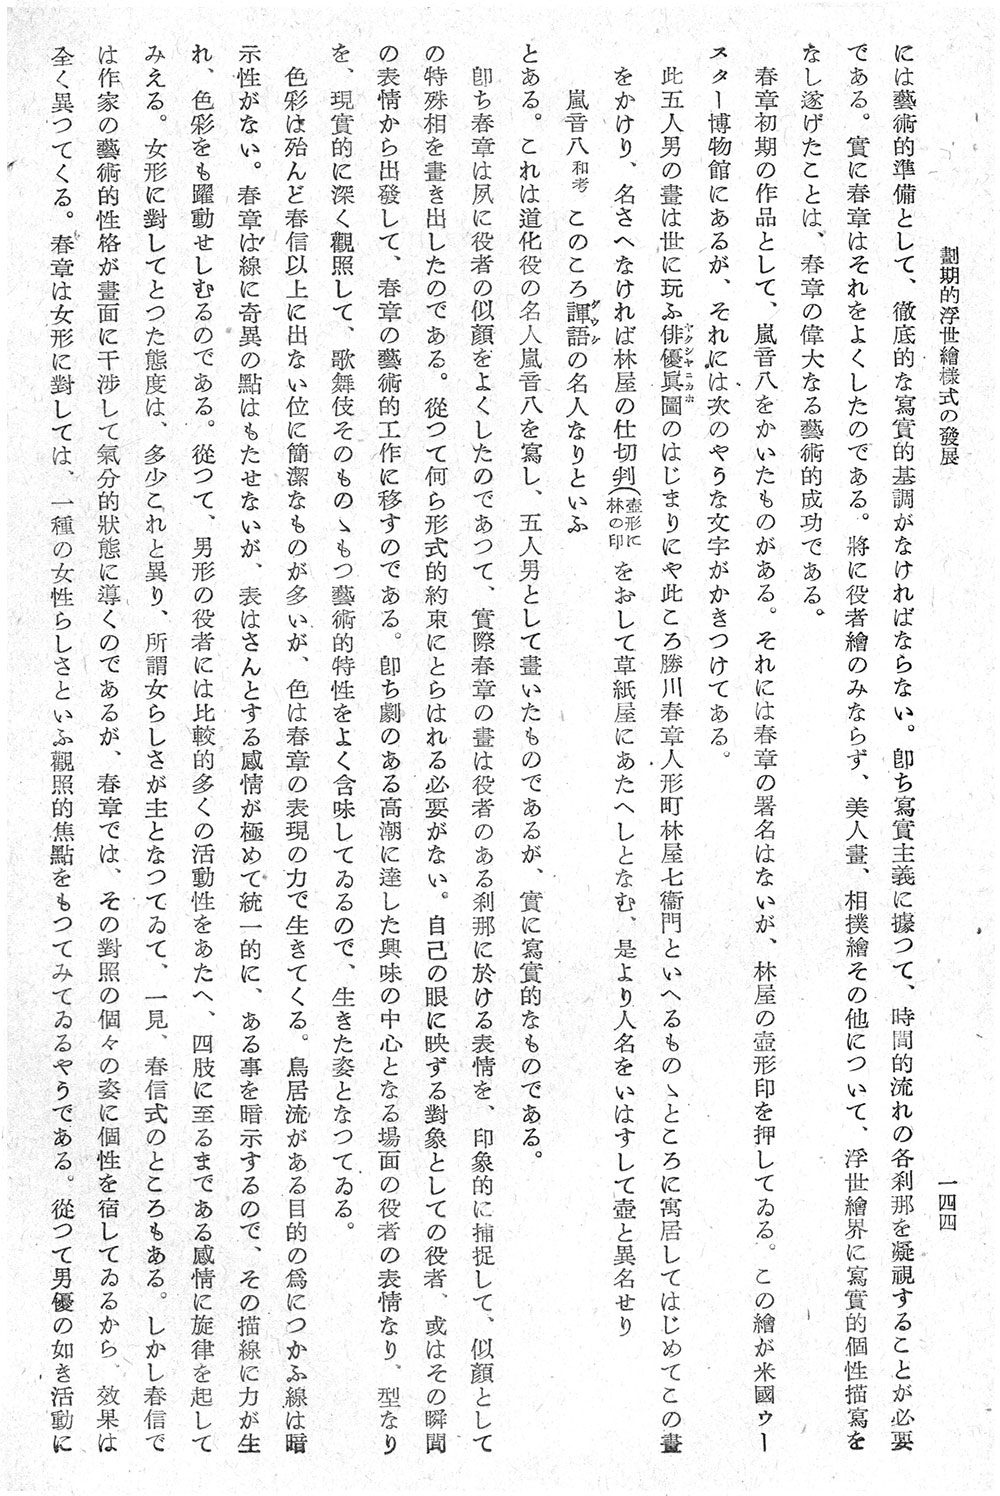 劃期的浮世繪樣式の發展
一四四
には藝術的準備として、徹底的な寫實的基調がなければならない。卽ち寫實主義に據つて、時間的流れの各刹那を凝視することが必要
である。實に春章はそれをよくしたのである。將に役者繪のみならず、美人畫、相撲繪その他について、浮世繪界に寫實的個性描寫を
なし遂げたことは、春章の偉大なる藝術的成功である。
春章初期の作品として、嵐音八をかいたものがある。それには春章の署名はないが、林屋の壺形印を押してゐる。この繪が米國ウー
スター博物館にあるが、それには次のやうな文字がかきつけてある。
此五人男の畫は世に玩ふ俳優眞圖のはじまりにや此ころ勝川春章人形町林屋七衞門といへるものゝところに寓居してはじめてこの畫
ヤクシヤニカホ
をかけり、名さへなければ林屋の仕切判(壺形に林の印をおして草紙屋にあたへしとなむ、是より人名をいはすして壺と異名せり
嵐音八和考 このころ諢語の名人なりといふ
ダウシ
とある。これは道化役の名人嵐音八を寫し、五人男として畫いたものであるが、實に寫實的なものである。
卽ち春章は夙に役者の似顔をよくしたのであつて、實際春章の畫は役者のある刹那に於ける表情を、印象的に捕捉して、似顔として
の特殊相を畫き出したのである。從つて何ら形式的約束にとらはれる必要がない。自己の眼に映ずる對象としての役者、或はその瞬間
の表情から出發して、春章の藝術的工作に移すのである。卽ち劇のある高潮に達した興味の中心となる場面の役者の表情なり、型なり
を、現實的に深く觀照して、歌舞伎そのものゝもつ藝術的特性をよく含味してゐるので、生きた姿となつてゐる。
色彩は殆んど春信以上に出ない位に簡潔なものが多いが、色は春章の表現の力で生きてくる。鳥居流がある目的の爲につかふ線は暗
示性がない。春章は線に奇異の點はもたせないが、表はさんとする感情が極めて統一的に、ある事を暗示するので、その描線に力が生
れ、色彩をも躍動せしむるのである。從つて、男形の役者には比較的多くの活動性をあたへ、四肢に至るまである感情に旋律を起して
みえる。女形に對してとつた態度は、多少これと異り、所謂女らしさが主となつてゐて、一見、春信式のところもある。しかし春信で
は作家の藝術的性格が畫面に干涉して氣分的狀態に導くのであるが、春章では、その對照の個々の姿に個性を宿してゐるから、效果は
全く異つてくる。春章は女形に對しては、一種の女性らしさといふ觀照的焦點をもつてみてゐるやうである。從つて男優の如き活動に